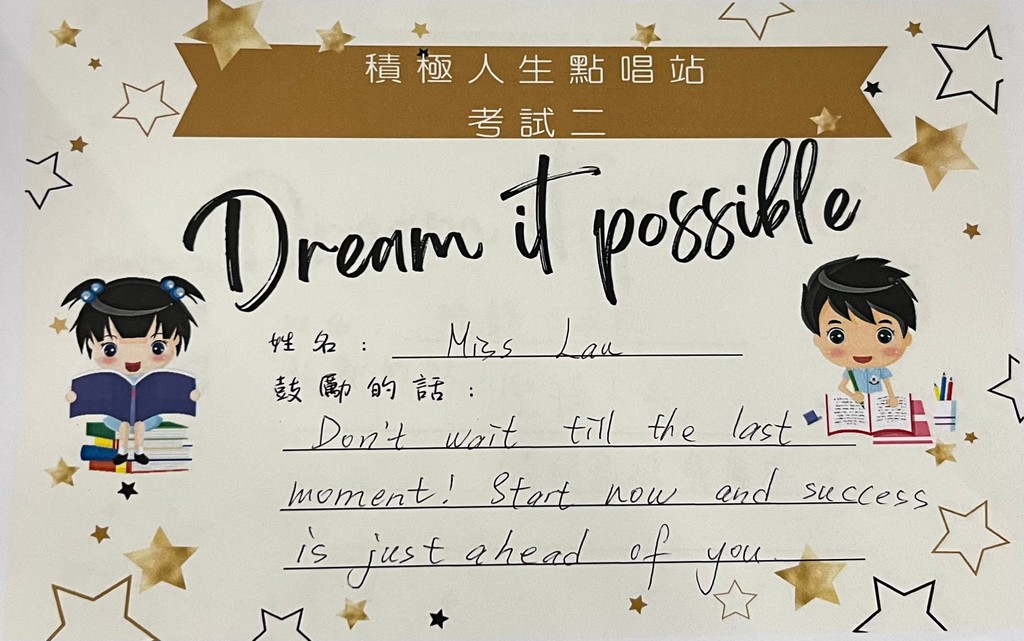 積極人生點唱站
考試二
Dream it possible
姓名： Miss Lau
鼓勵的話：
Don't wait till the last
moment! Start now and success
is just ahead of you.